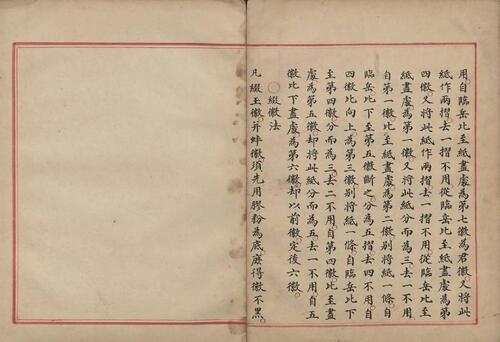 用自臨岳比至紙盡處為第七徽為君徽又將此
紙作兩摺去一摺不用從臨岳比至紙盡處為第
四徽又將此紙作兩摺去一摺不用從臨岳比至
紙盡處為第一徽又將此紙分而為三去一不用
自第一徽比至紙盡處為第二徽别將紙一條自
臨岳比下至第五徽斷之分為五摺去四不用自
四徽比向上為第三徽别將紙一條自臨岳比下
至第四徽分而為三去二不用自第四徽比至盡
處為第五徽却將此紙分而為五去一不用自五
徽比下盡處為第六徽却以前徽定後六徽
綴徽法
凡綴玉徽并蚌徽須先用膠粉為底庶得徽不黑